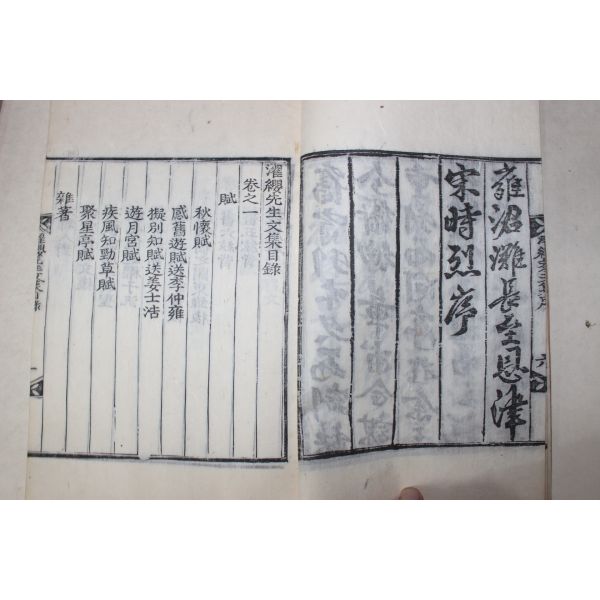 雍涒灘長至恩津
宋時烈序
六
濯纓先生文集目錄
卷之一
賦
秋懷賦
感舊遊賦送李仲雍
擬別知賦送姜士浩
遊月宮賦
疾風知勁草賦
聚星亭賦
雜著
一